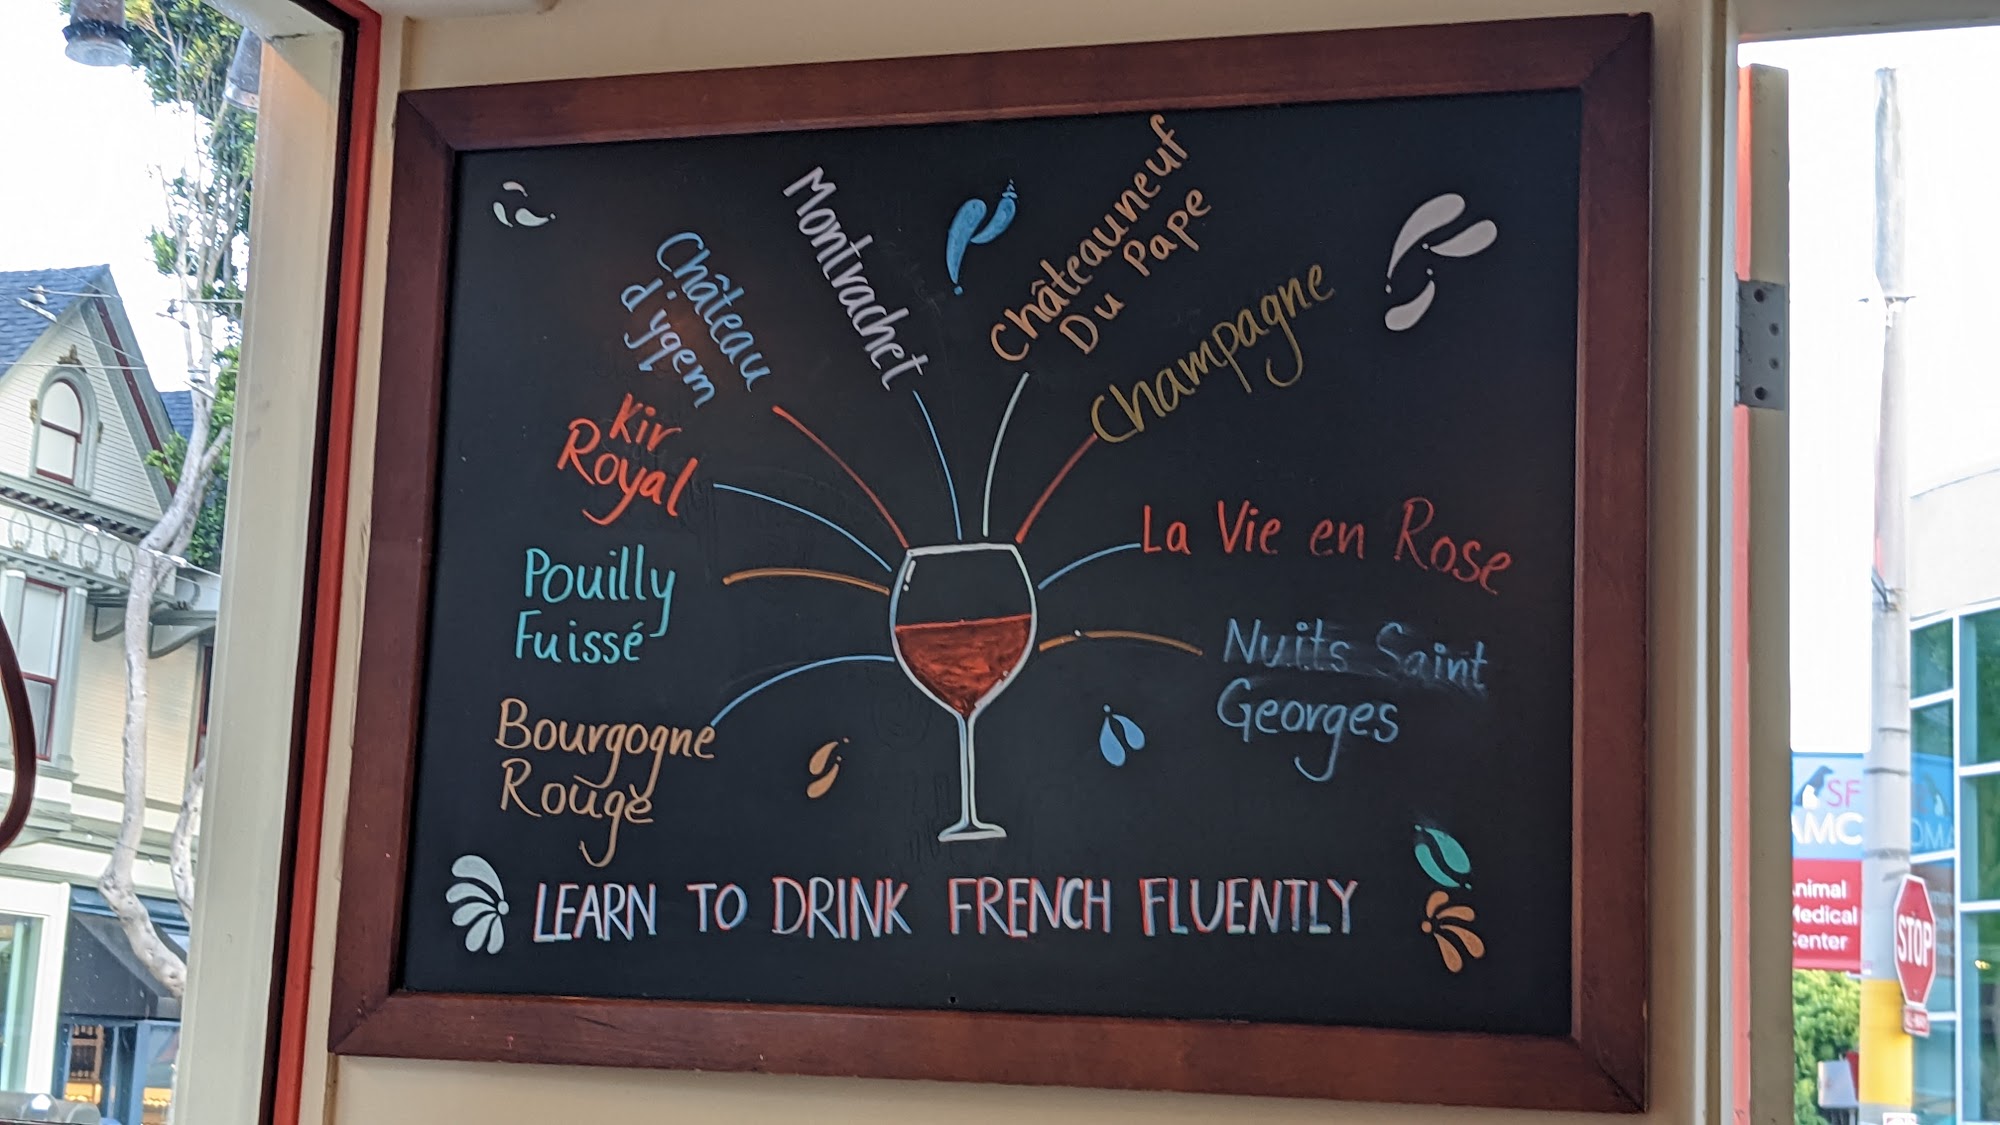 Montrachet
Châteauneuf
Du Pape
Château
d'yqem
Champagne
Kir
Royal
La Vie en Rose
Pouilly
Fuissé
Nuits Saint
Georges
Bourgogne
Rouge
LEARN TO DRINK FRENCH FLUENTLY
SF
AMC
Animal
Medical
Center
STOP